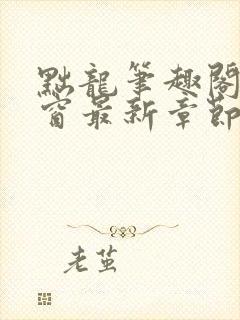 點龍筆趣閣
窗最新章節
老茧